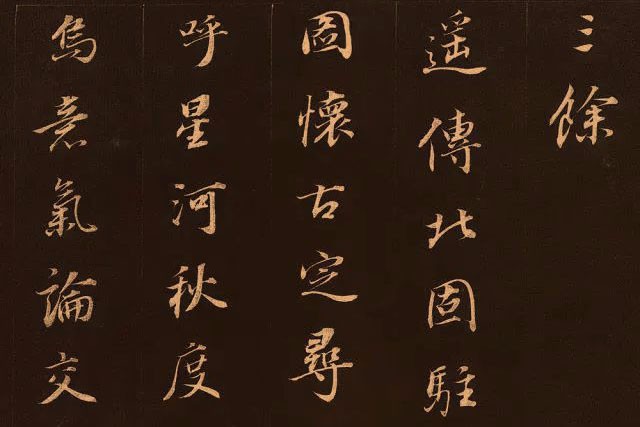 三餘
遥傳北固駐
圖懷古定尋
呼星河秋度
意氣論交